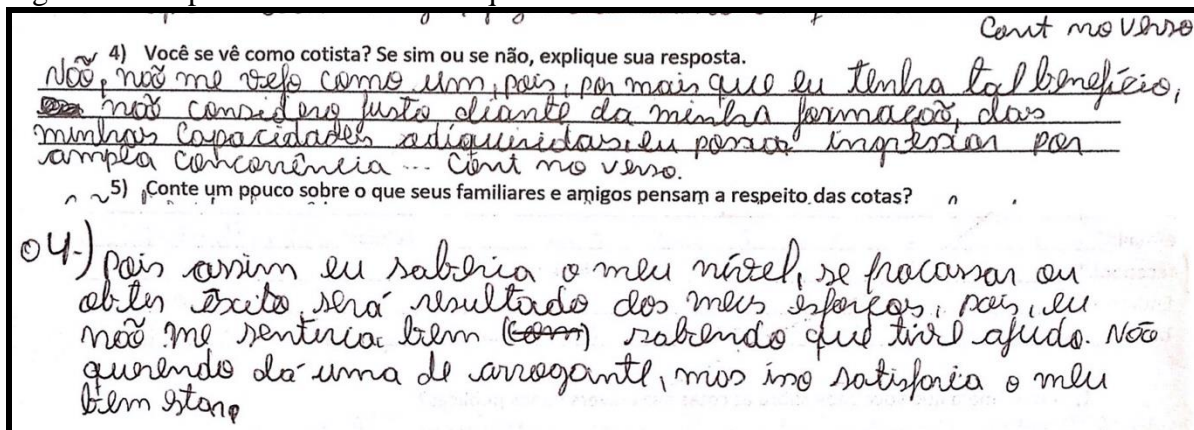 Cont no verso
4) Você se vê como cotista? Se sim ou se não, explique sua resposta.
Não, não me vejo como um, pois, por mais que eu tenha tal benefício,
não considero justo diante da minha formação, das
minhas capacidades adiquiridas, eu possa ingressar por
ampla concorrência ... Cont no verso.
5) Conte um ppuco sobre o que seus familiares e amigos pensam a respeito das cotas?
04.) pois assim eu saberia o meu nível, se fracassar ou
obter êxito, será resultado dos meus esforços, pois, eu
não me sentiria bem (com) sabendo que tive ajuda. Não
querendo dá uma de arrogante, mas isso satisfaria o meu
bem estar